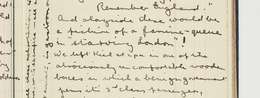 Remember England."
And alongside these would be
a picture of a famine-queue
in starving London"!
We left Kiel at 9 p.m. in one of the
atrociously uncomfortable wooden
boxes in which a benign government
pens its 3rd class passenger,